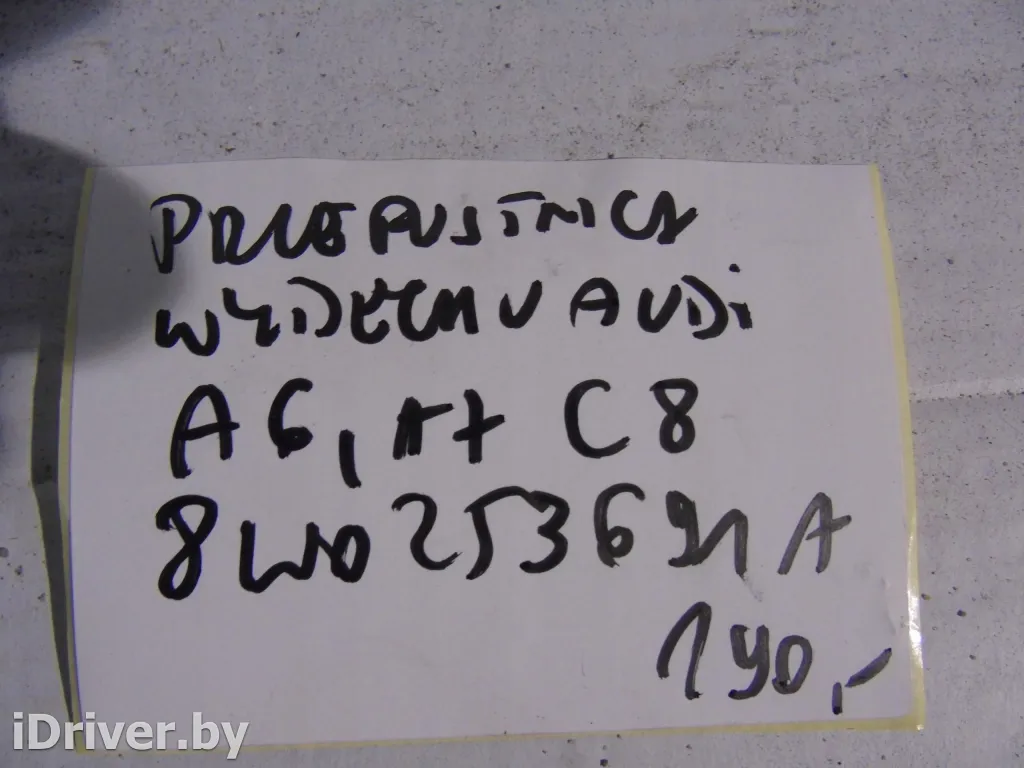 PRZEPUSTNICA
WYDECHU AUDi
A6, A7 C8
8W0253691A
190,-
iDriver.by